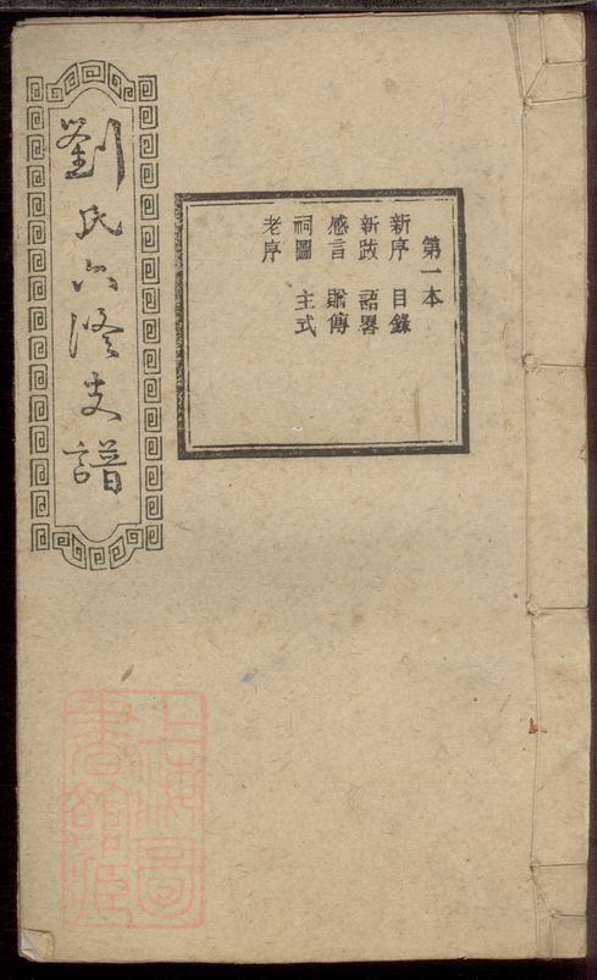 劉氏六修支譜
第一本
新序 目錄
新跋 語畧
感言 贈傳
祠圖 主式
老序
上海圖
書館藏